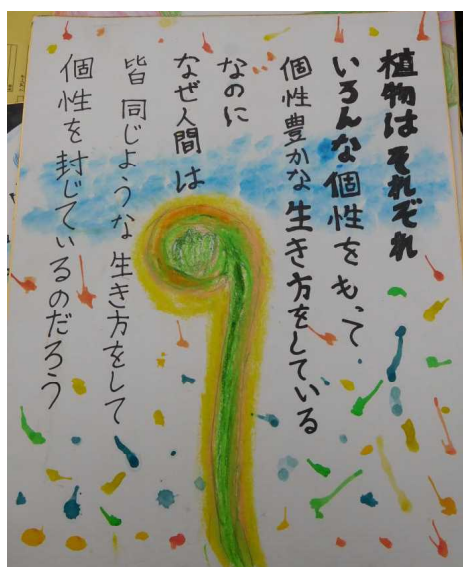 植物はそれぞれ
いろんな個性をもって
個性豊かな生き方をしている
なのに
なぜ人間は
皆同じような生き方をして
個性を封じているのだろう